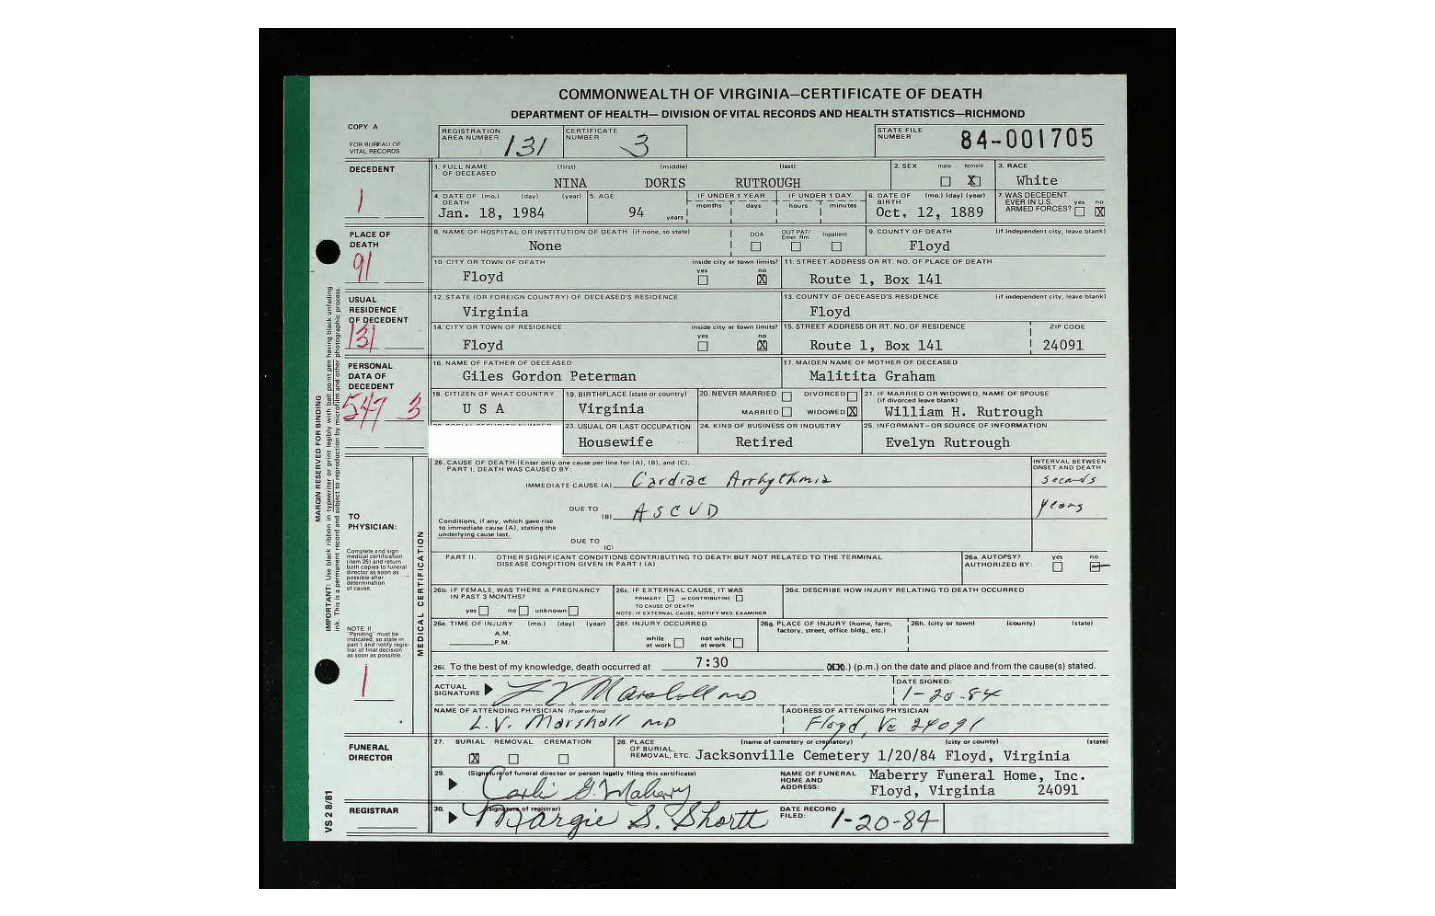 COMMONWEALTH OF VIRGINIA—CERTIFICATE OF DEATH
DEPARTMENT OF HEALTH— DIVISION OF VITAL RECORDS AND HEALTH STATISTICS—RICHMOND
COPY A
FOR BUREAU OF VITAL RECORDS
REGISTRATION AREA NUMBER 131 CERTIFICATE NUMBER 3 STATE FILE NUMBER 84-001705
DECEDENT
1
1. FULL NAME OF DECEASED (first) (middle) (last) 2. SEX male female 3. RACE
NINA DORIS RUTROUGH X White
4. DATE OF DEATH (mo.) (day) (year) 5. AGE IF UNDER 1 YEAR IF UNDER 1 DAY 6. DATE OF BIRTH (mo.) (day) (year) 7. WAS DECEDENT EVER IN U.S. ARMED FORCES? yes no
Jan. 18, 1984 94 years months days hours minutes Oct. 12, 1889 X
PLACE OF DEATH
91
8. NAME OF HOSPITAL OR INSTITUTION OF DEATH (if none, so state) DOA OUT PAT/ Emer. Rm. Inpatient 9. COUNTY OF DEATH (if independent city, leave blank)
None Floyd
10. CITY OR TOWN OF DEATH inside city or town limits? yes no 11. STREET ADDRESS OR RT. NO. OF PLACE OF DEATH
Floyd X Route 1, Box 141
USUAL RESIDENCE OF DECEDENT
131
12. STATE (OR FOREIGN COUNTRY) OF DECEASED'S RESIDENCE 13. COUNTY OF DECEASED'S RESIDENCE (if independent city, leave blank)
Virginia Floyd
14. CITY OR TOWN OF RESIDENCE inside city or town limits? yes no 15. STREET ADDRESS OR RT. NO. OF RESIDENCE ZIP CODE
Floyd X Route 1, Box 141 24091
PERSONAL DATA OF DECEDENT
547 3
16. NAME OF FATHER OF DECEASED 17. MAIDEN NAME OF MOTHER OF DECEASED
Giles Gordon Peterman Malitita Graham
18. CITIZEN OF WHAT COUNTRY 19. BIRTHPLACE (state or country) 20. NEVER MARRIED DIVORCED 21. IF MARRIED OR WIDOWED, NAME OF SPOUSE (if divorced leave blank)
U S A Virginia MARRIED WIDOWED X William H. Rutrough
23. USUAL OR LAST OCCUPATION 24. KIND OF BUSINESS OR INDUSTRY 25. INFORMANT- OR SOURCE OF INFORMATION
Housewife Retired Evelyn Rutrough
MARGIN RESERVED FOR BINDING
IMPORTANT: Use black ribbon in typewriter or print legibly with ball point pen having black unfading
ink. This is a permanent record and subject to reproduction by microfilm and other photographic process.
TO PHYSICIAN:
Complete and sign medical certification (item 26) and return both copies to funeral director as soon as possible after determination of cause.
NOTE: If "Pending" must be indicated, so state in part 1 and notify registrar of final decision as soon as possible.
1
MEDICAL CERTIFICATION
26. CAUSE OF DEATH (Enter only one cause per line for (A), (B), and (C). INTERVAL BETWEEN ONSET AND DEATH
PART I. DEATH WAS CAUSED BY:
IMMEDIATE CAUSE (A) Cardiac Arrhythmia seconds
DUE TO (B) ASCVD years
Conditions, if any, which gave rise to immediate cause (A), stating the underlying cause last.
DUE TO (C)
PART II. OTHER SIGNIFICANT CONDITIONS CONTRIBUTING TO DEATH BUT NOT RELATED TO THE TERMINAL DISEASE CONDITION GIVEN IN PART I (A) 26a. AUTOPSY? AUTHORIZED BY: yes no
26b. IF FEMALE, WAS THERE A PREGNANCY IN PAST 3 MONTHS? yes no unknown
26c. IF EXTERNAL CAUSE, IT WAS PRIMARY or CONTRIBUTING TO CAUSE OF DEATH
NOTE: IF EXTERNAL CAUSE, NOTIFY MED. EXAMINER
26d. DESCRIBE HOW INJURY RELATING TO DEATH OCCURRED
26e. TIME OF INJURY (mo.) (day) (year) A.M. P.M.
26f. INJURY OCCURRED while at work not while at work
26g. PLACE OF INJURY (home, farm, factory, street, office bldg., etc.) 26h. (city or town) (county) (state)
26i. To the best of my knowledge, death occurred at 7:30 (XX.) (p.m.) on the date and place and from the cause(s) stated.
ACTUAL SIGNATURE L V Marshall MD DATE SIGNED: 1-20-84
NAME OF ATTENDING PHYSICIAN (Type or Print) ADDRESS OF ATTENDING PHYSICIAN
L.V. Marshall MD Floyd, Va 24091
FUNERAL DIRECTOR
27. BURIAL REMOVAL CREMATION 28. PLACE OF BURIAL, REMOVAL, ETC. (name of cemetery or crematory) (city or county) (state)
X Jacksonville Cemetery 1/20/84 Floyd, Virginia
29. (Signature of funeral director or person legally filing this certificate) NAME OF FUNERAL HOME AND ADDRESS: Maberry Funeral Home, Inc.
Floyd, Virginia 24091
REGISTRAR
30. (Signature of registrar) Margie S. Shortt DATE RECORD FILED: 1-20-84
VS 2 8/81